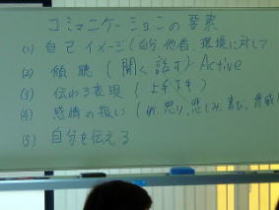 コミュニケーションの要素
(1) 自己イメージ(自分、他者、環境に対して
(2) 傾聴 (聞く 話す) Active
(3) 伝わる表現 (上手下手)
(4) 感情の扱い ( 怒り, 悲しみ, 喜び,
(5) 自分を伝える